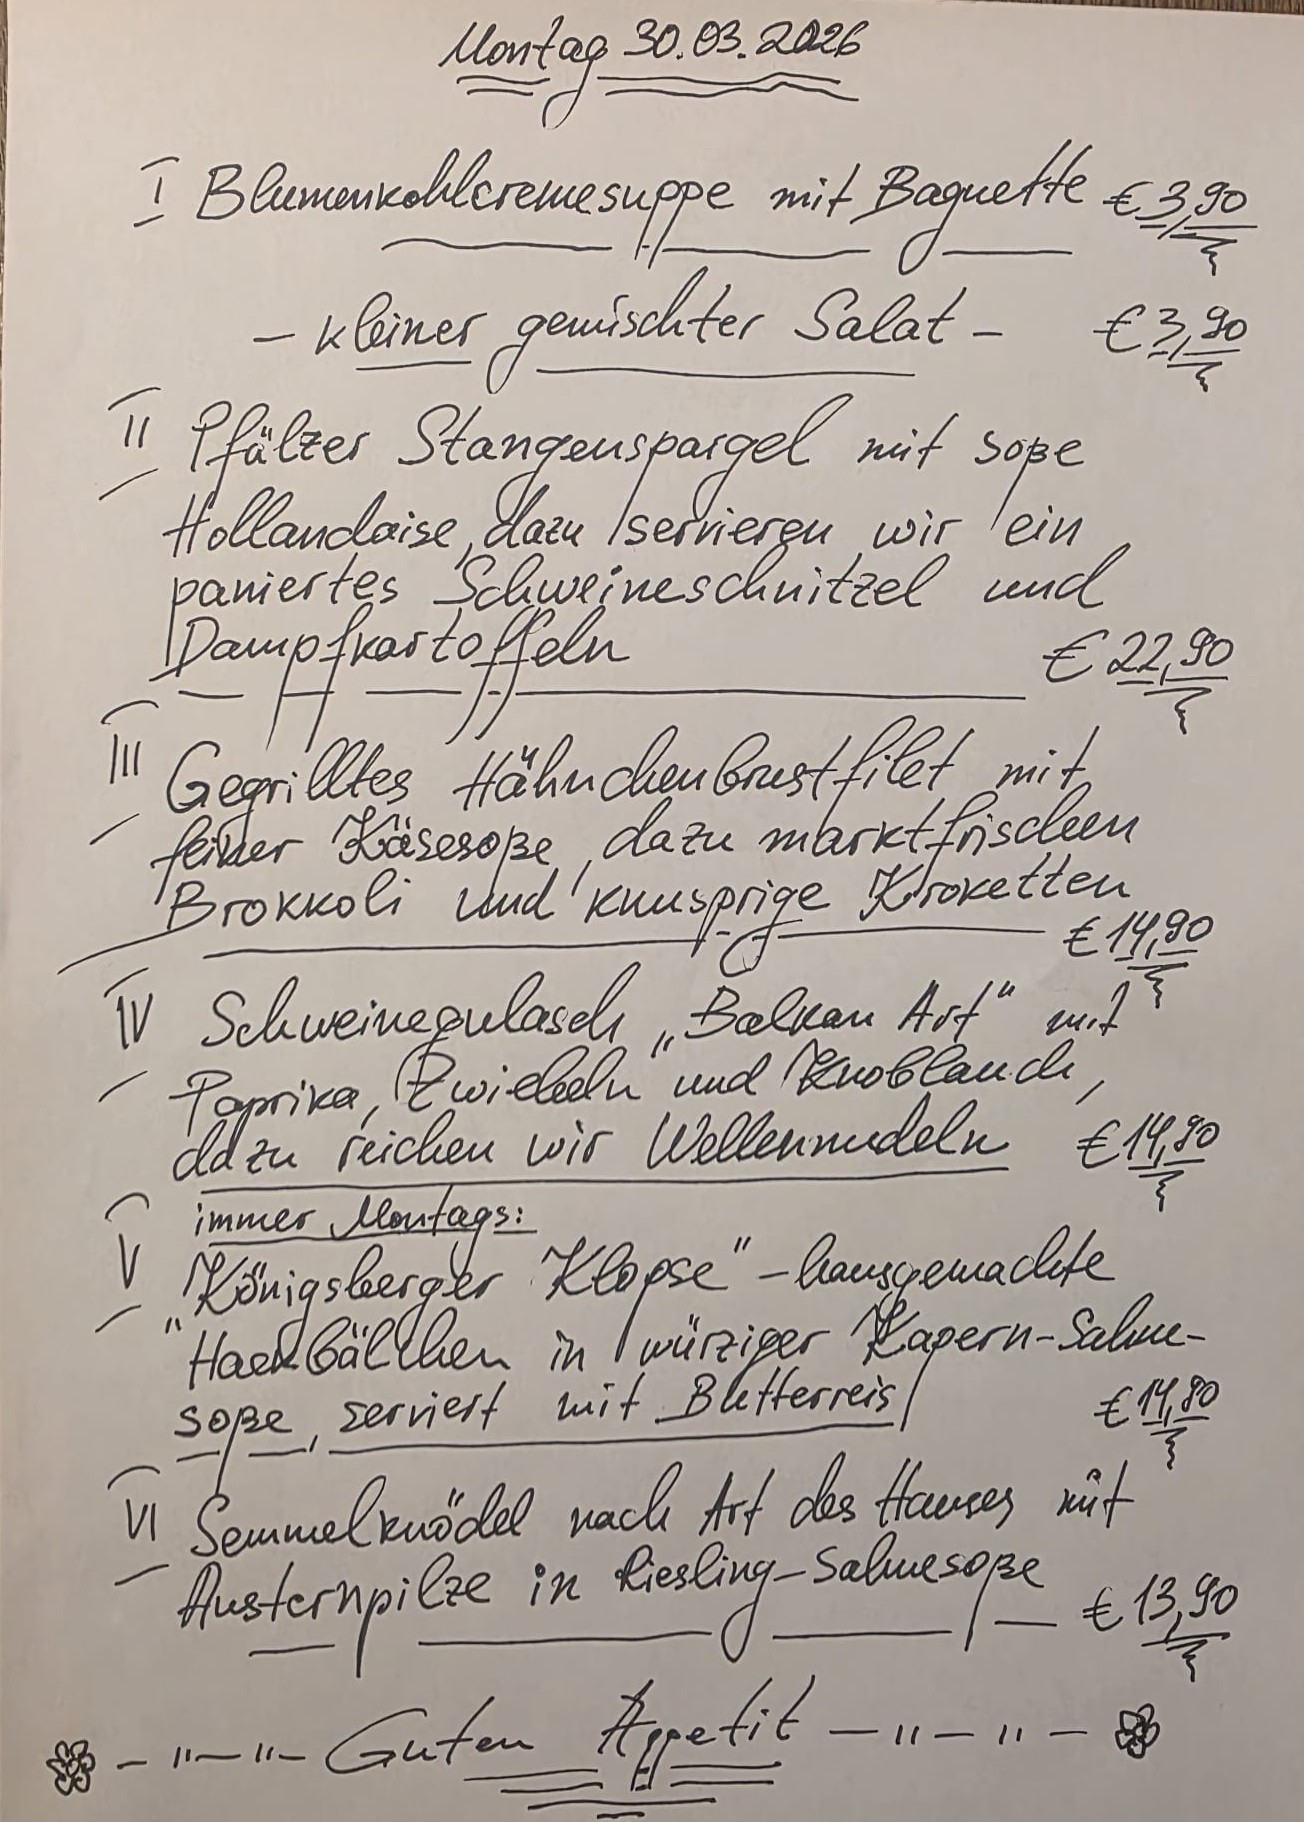 Montag 30.03.2026
I Blumenkohlcremesuppe mit Baguette € 3,90
- kleiner gemischter Salat - € 3,90
II Pfälzer Stangenspargel mit Soße
Hollandaise, dazu servieren wir ein
paniertes Schweineschnitzel und
Dampfkartoffeln € 22,90
III Gegrilltes Hähnchenbrustfilet mit
feiner Käsesoße, dazu marktfrischen
Brokkoli und knusprige Kroketten
€ 14,90
IV Schweinegulasch „Balkan Art“ mit
Paprika, Zwiebeln und Knoblauch,
dazu reichen wir Wellennudeln € 14,90
immer Montags:
V „Königsberger Klopse“ - hausgemachte
Hackbällchen in würziger Kapern-Sahne-
soße, serviert mit Butterreis € 14,90
VI Semmelknödel nach Art des Hauses mit
Austernpilze in Riesling-Sahnesoße
€ 13,90
- " - " - Guten Appetit - " - " -